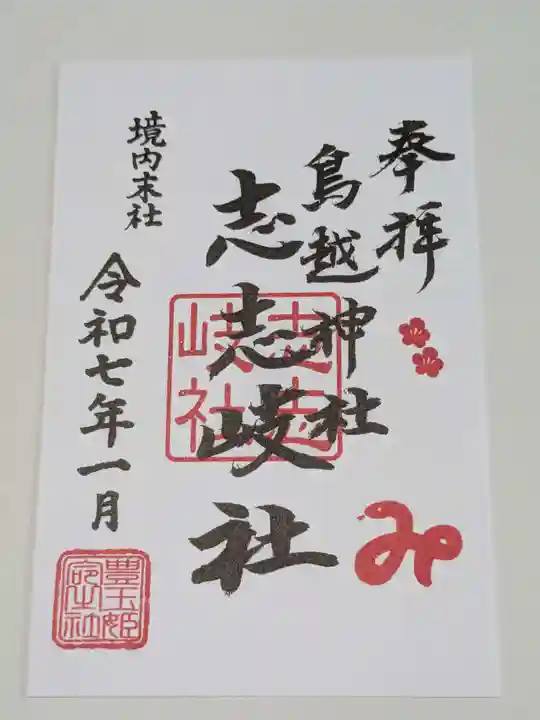 奉拝
鳥越神社
志志岐社
志志岐社
境内末社
令和七年一月
豊玉姫
み